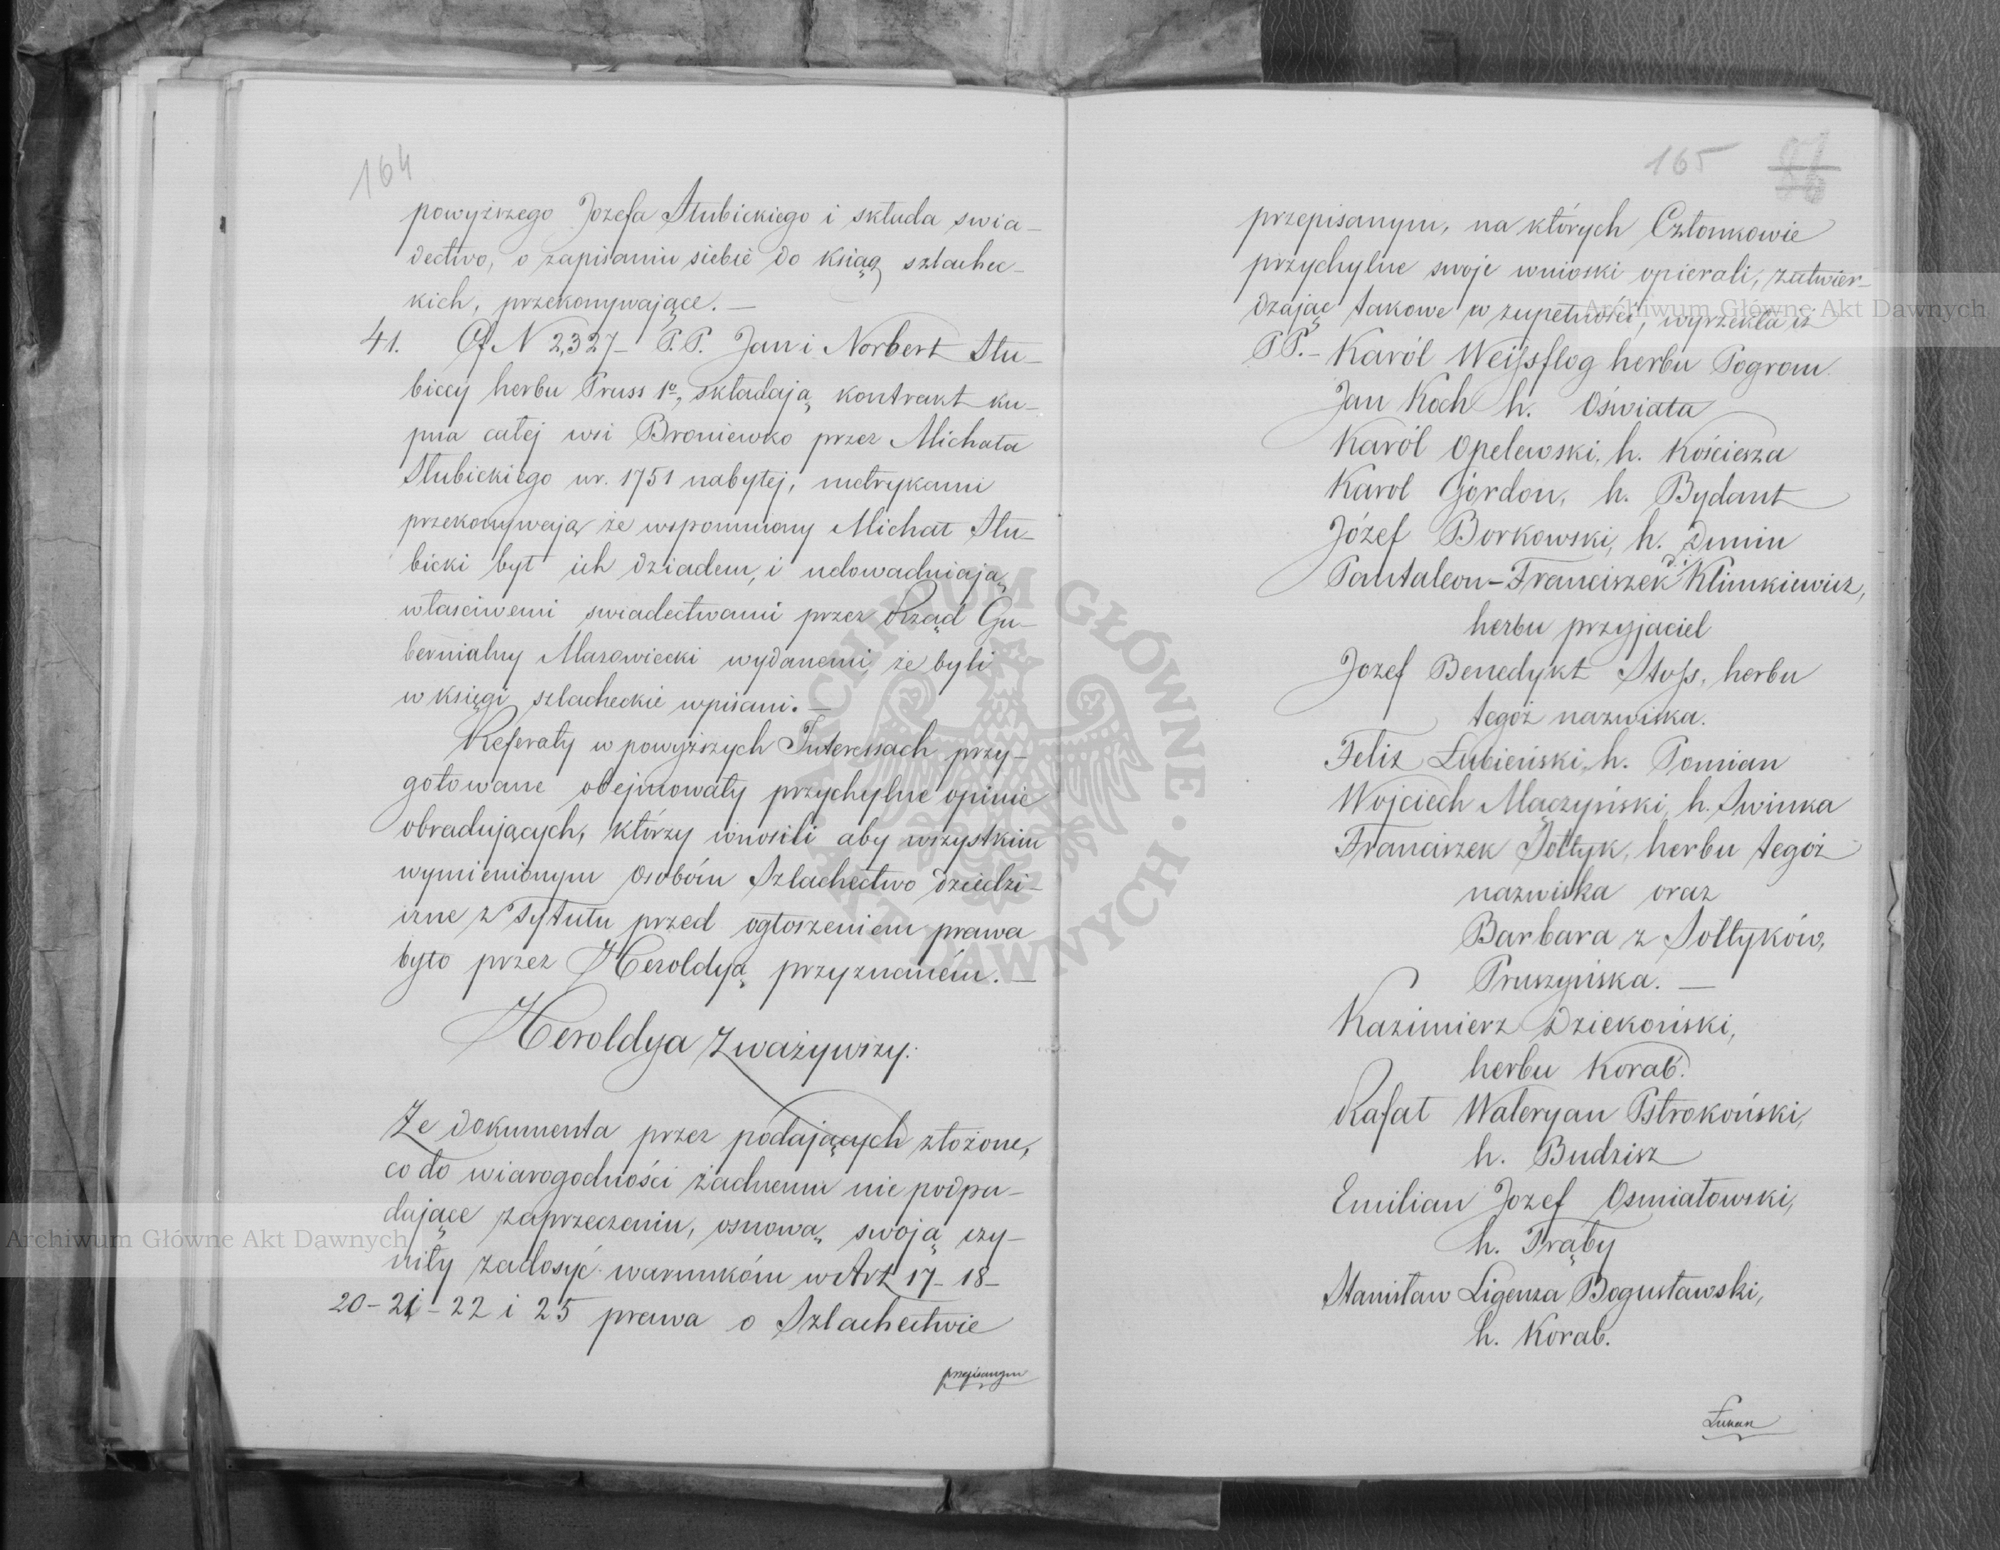 164
powyższego Jozefa Słubickiego i składa swia-
dectwo, o zapisaniu siebie do ksiąg szlachec-
kich, przekonywające. —
41. Cf N 2,327 – P.P. Jan i Norbert Słu-
biccy herbu Pruss 1º, składają kontrakt ku-
pna całej wsi Broniewko przez Michała
Słubickiego w r. 1751 nabytej, metrykami
przekonywają że wspomniony Michał Słu-
bicki był ich dziadem, i udowadniają
własciwemi swiadectwami przez Rząd Gu-
bernialny Mazowiecki wydanemi, że byli
w księgi szlacheckie wpisani. —
Referaty w powyższych Interessach przy-
gotowane obejmowały przychylne opinie
obradujących, którzy wnosili aby wszystkim
wymienionym osobóm Szlachectwo dziedzi-
czne z tytułu przed ogłoszeniem prawa
było przez Heroldyą przyznaném. —
Heroldya Zważywszy:
Ze dokumenta przez podających złożone,
co do wiarogodności żadnemu nie podpa-
dające zaprzeczeniu, osnową swoją czy-
niły zadosyć warunkóm w Art 17 – 18 –
20 – 21 – 22 i 25 prawa o Szlachectwie
przepisanym
165
przepisanym, na których Członkowie
przychylne swoje wnioski opierali, zatwier-
dzając takowe w zupełności, wyrzekła iż
PP. – Karól Weissflog herbu Pogrom
Jan Koch h. Oświata
Karól Opelewski, h. Kościesza
Karol Gordon, h. Bydant
Józef Borkowski, h. Dunin
Pantaleon – Franciszek Klimkiewicz,
herbu przyjaciel
Jozef Benedykt Stoss, herbu
tegoż nazwiska.
Felix Łubieński, h. Pomian
Wojciech Mączyński, h. Swinka
Franciszek Sołtyk, herbu tegoż
nazwiska oraz
Barbara z Sołtyków,
Pruszyńska. —
Kazimierz Dziekoński,
herbu Korab.
Rafał Waleryan Pstrokoński,
h. Budzisz
Emilian Jozef Osmiałowski,
h. Trąby
Stanisław Ligenza Bogusławski,
h. Korab.
Łukan
Archiwum Główne Akt Dawnych
Archiwum Główne Akt Dawnych
ARCHIWUM GŁÓWNE · AKT DAWNYCH ·